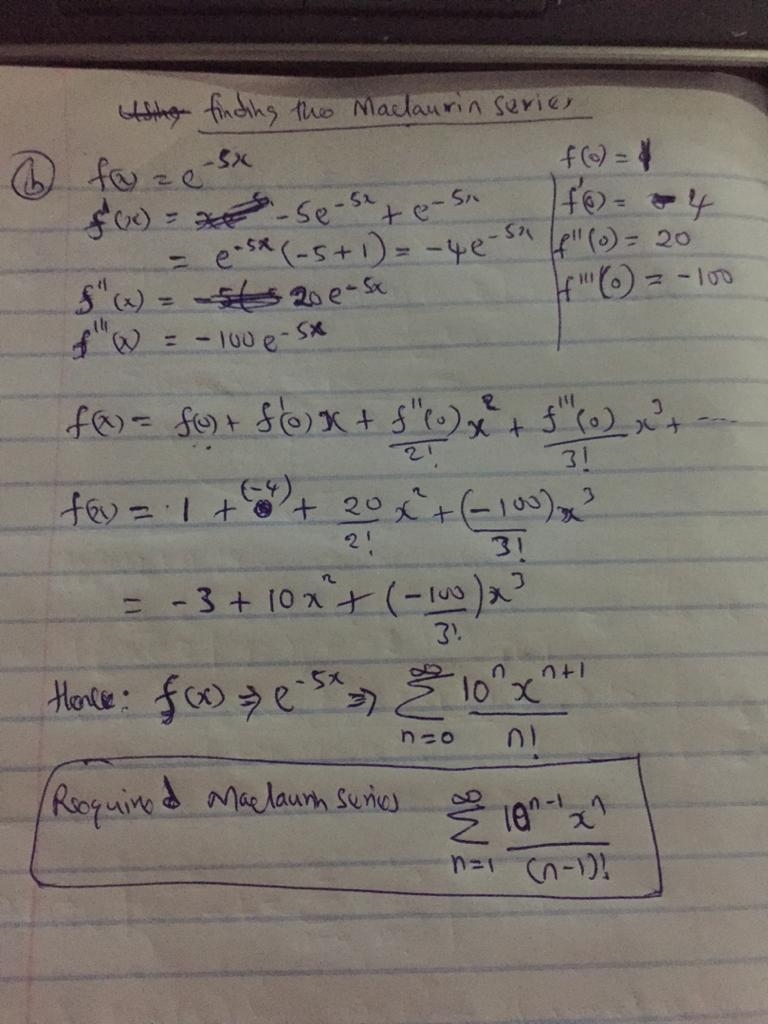 finding the Maclaurin series
(b) f(x) = e^-5x
f'(x) = -5e^-5x + e^-5x
= e^-5x (-5+1) = -4e^-5x
f''(x) = 20e^-5x
f'''(x) = -100e^-5x
f(0) = 1
f'(0) = -4
f''(0) = 20
f'''(0) = -100
f(x) = f(0) + f'(0)x + f''(0)/2! x^2 + f'''(0)/3! x^3 + ----
f(x) = 1 + (-4) + 20/2! x^2 + (-100)/3! x^3
= -3 + 10x^2 + (-100/3!)x^3
Hence: f(x) ⇒ e^-5x ⇒ ∑_{n=0}^{∞} 10^n x^{n+1}/n!
Required Maclaurin series ∑_{n=1}^{∞} 10^{n-1} x^n/(n-1)!